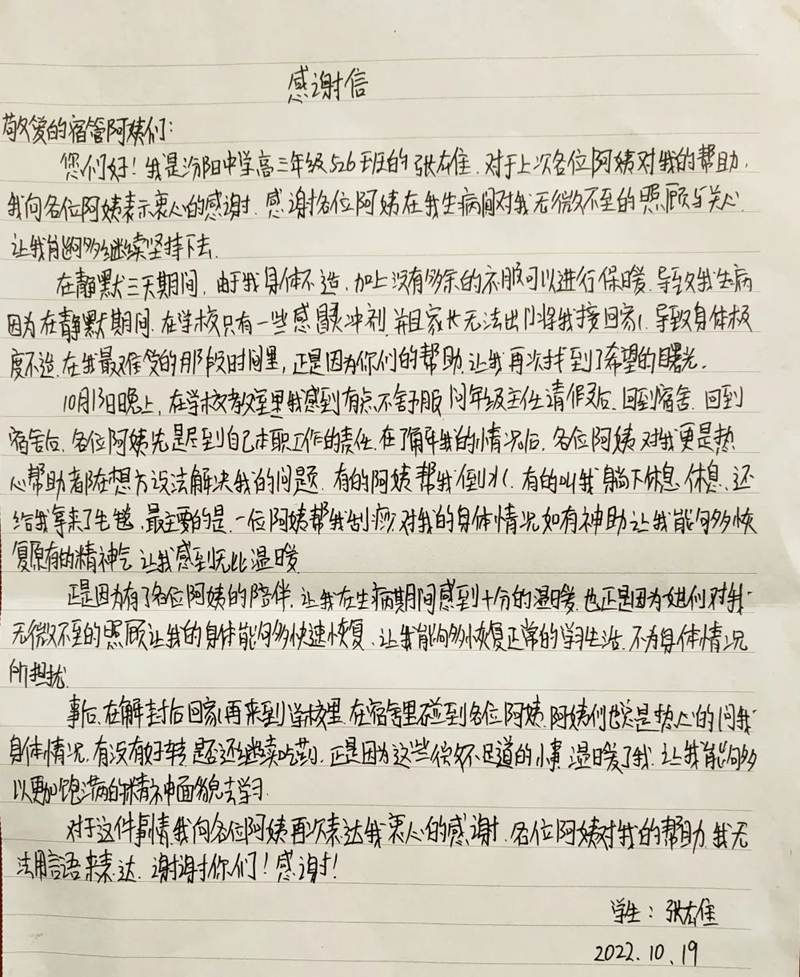 感谢信
敬爱的宿管阿姨们:
您们好！我是汾阳中学高三年级526班的张右佳.对于上次各位阿姨对我的帮助,
我向各位阿姨表示衷心的感谢.感谢各位阿姨在我生病间对我无微不至的照顾与关心.
让我能够继续坚持下去.
在静默三天期间,由于我身体不适,加上没有多余的衣服可以进行保暖.导致我生病
因为在静默期间.在学校只有一些感冒灵冲剂.并且家长无法出门将我接回家.导致身体极
度不适.在我最难受的那段时间里,正是因为你们的帮助.让我再次找到了希望的曙光。
10月13日晚上,在学校教室里我感到有点不舒服.问年级主任请假后.回到宿舍.回到
宿舍后.各位阿姨先是尽到自己本职工作的责任.在了解我的情况后.各位阿姨对我更是热
心帮助都在想方设法解决我的问题.有的阿姨帮我倒水.有的叫我躺下休息休息.还
给我拿来了毛毯,最主要的是.一位阿姨帮我刮痧.对我的身体情况如有神助让我能够恢
复原有的精神气.让我感到无比温暖.
正是因为有了各位阿姨的陪伴.让我在生病期间感到十分的温暖.也正是因为她们对我
无微不至的照顾让我的身体能够快速恢复.让我能够恢复正常的学习生活.不为身体情况
所担扰.
事后.在解封后回家再来到学校里.在宿舍里碰到各位阿姨.阿姨们总是热心的问我
身体情况,有没有好转是否还继续吃药.正是因为这些微不足道的小事温暖了我.让我能够
以更加饱满的精神面貌去学习.
对于这件事情我向各位阿姨再次表达我衷心的感谢.各位阿姨对我的帮助.我无
法用言语来表达.谢谢你们！感谢！
学生:张右佳
2022.10.19